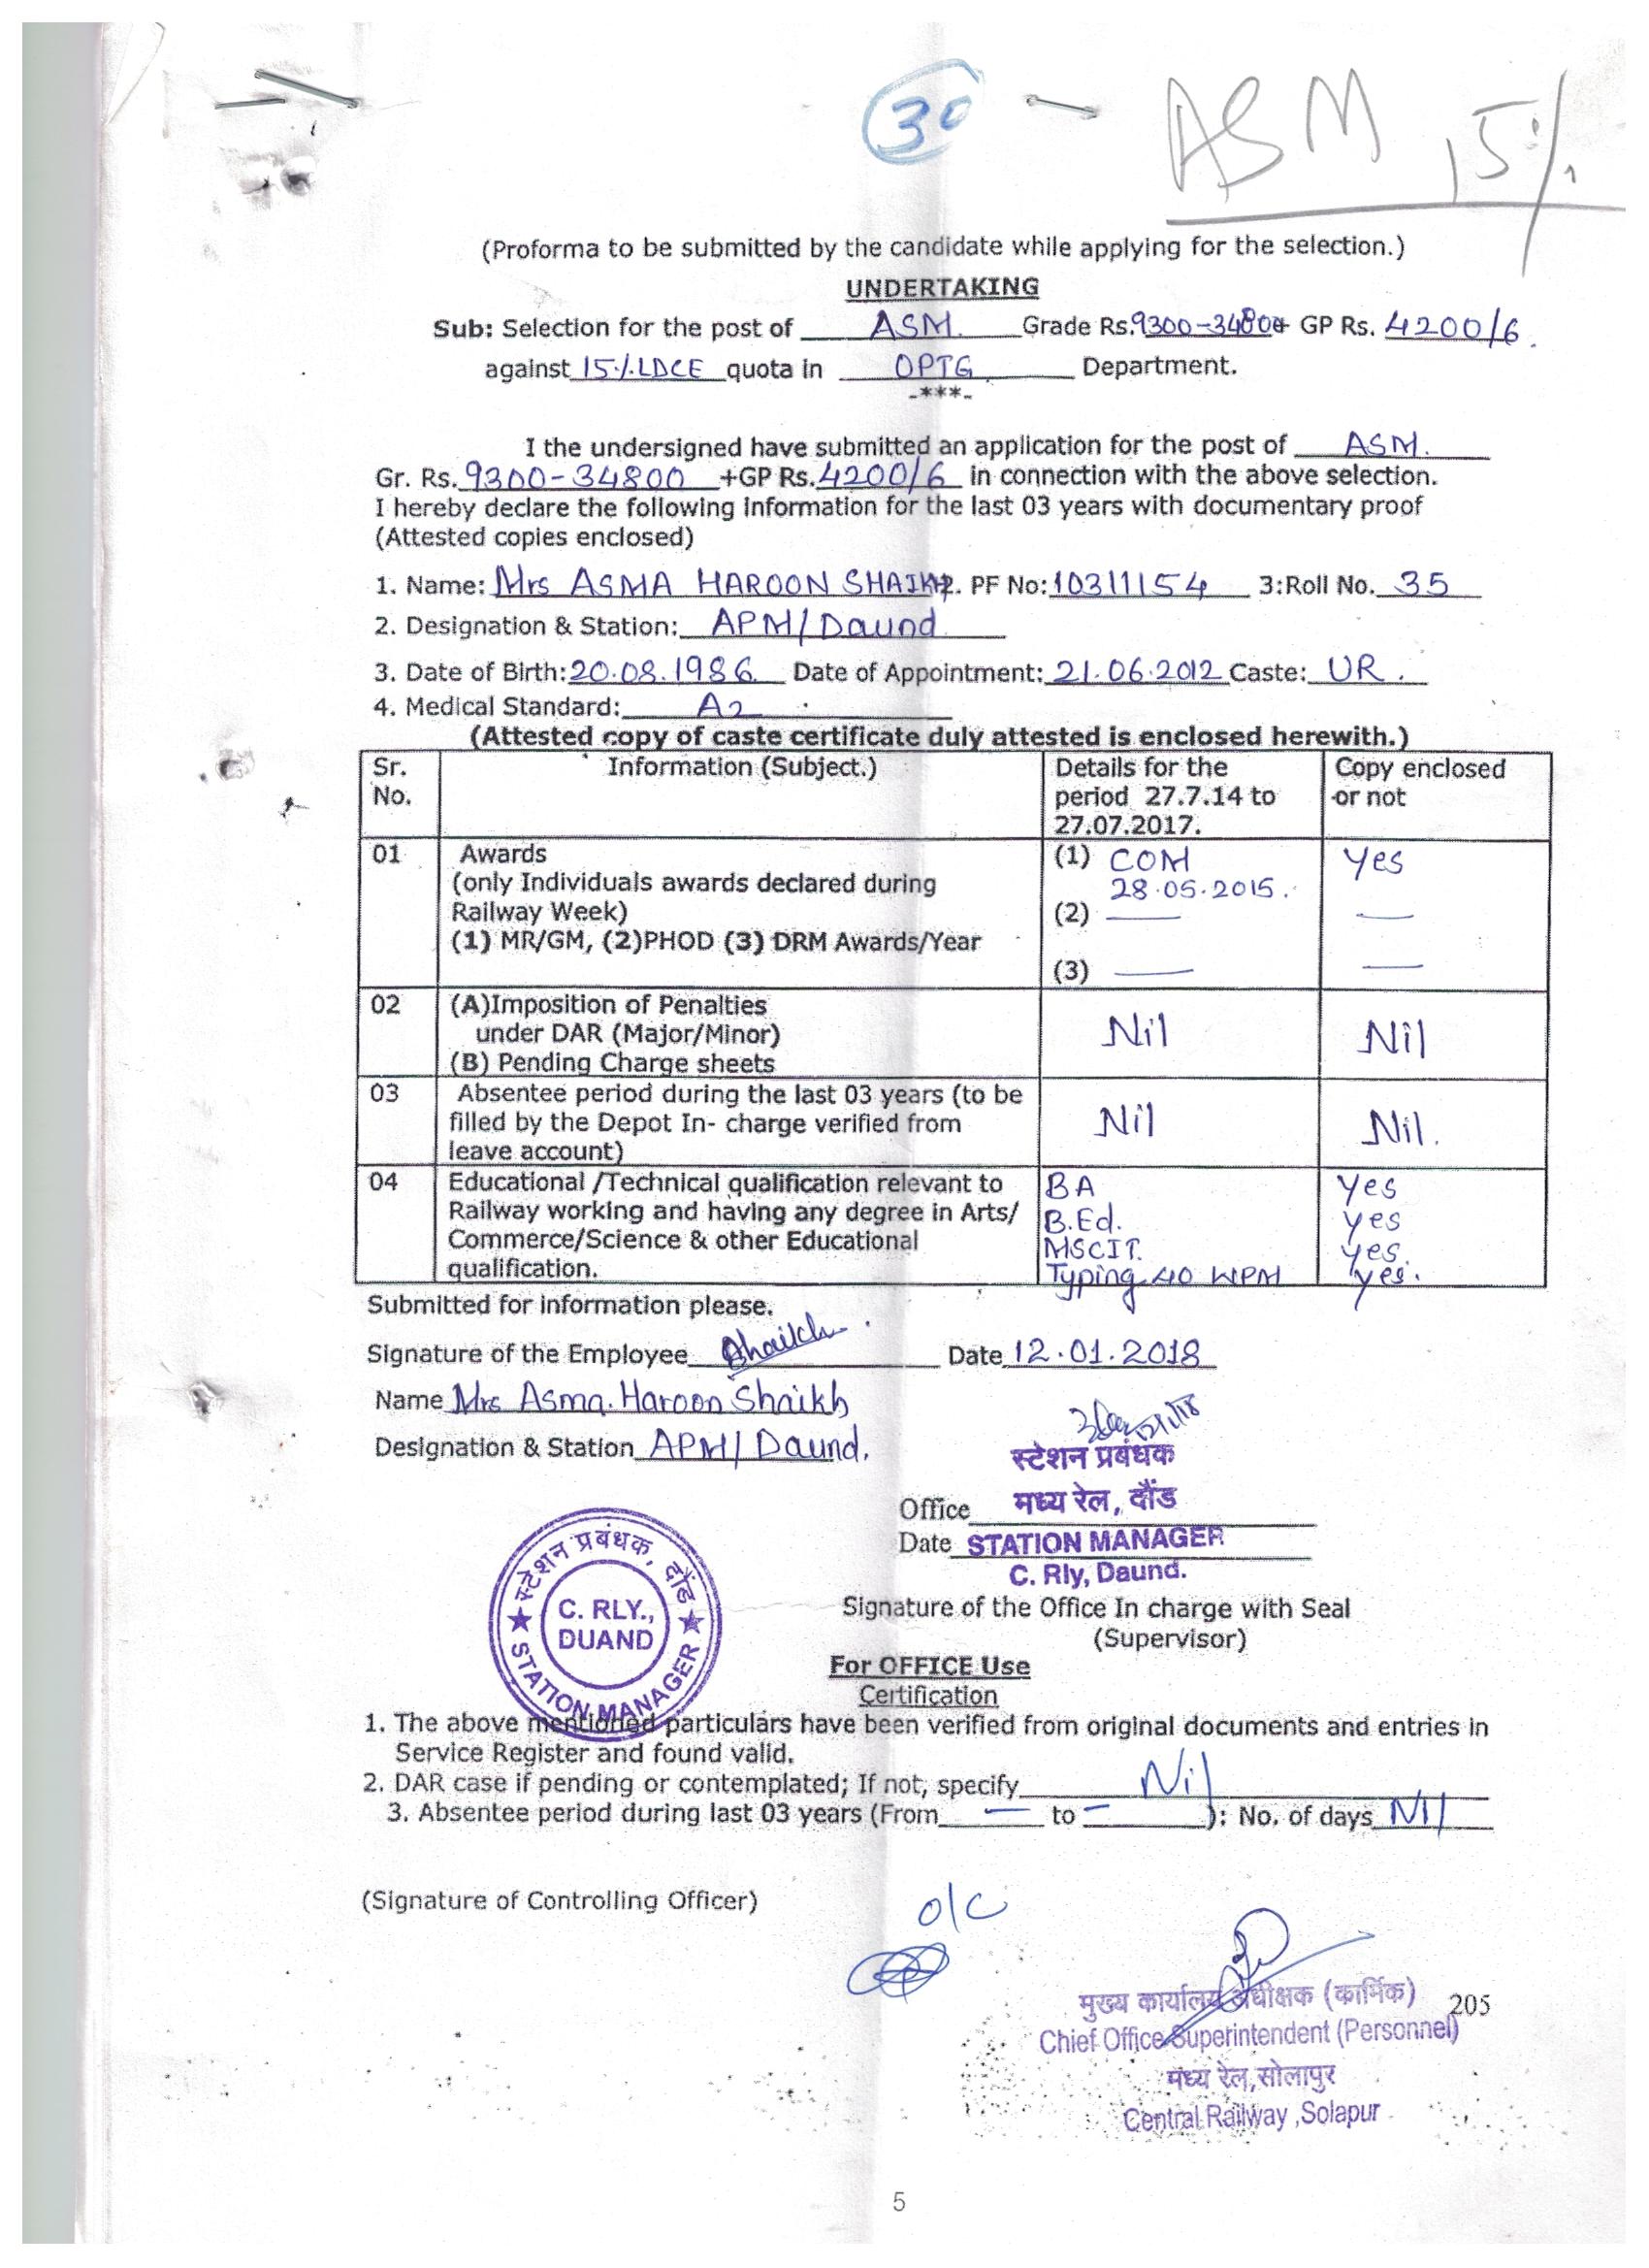 30
ASM 15%
(Proforma to be submitted by the candidate while applying for the selection.)
UNDERTAKING
Sub: Selection for the post of ASM. Grade Rs. 9300-34800+ GP Rs. 4200/6.
against 15% LDCE quota in OPTG Department.
-***-
I the undersigned have submitted an application for the post of ASM.
Gr. Rs. 9300-34800 +GP Rs. 4200/6 in connection with the above selection.
I hereby declare the following information for the last 03 years with documentary proof
(Attested copies enclosed)
1. Name: Mrs ASMA HAROON SHAIKH 2. PF No: 10311154 3:Roll No. 35
2. Designation & Station: APM/Daund
3. Date of Birth: 20.08.1986 Date of Appointment: 21.06.2012 Caste: UR.
4. Medical Standard: A2
(Attested copy of caste certificate duly attested is enclosed herewith.)
Sr. Information (Subject.) Details for the Copy enclosed
No. period 27.7.14 to or not
27.07.2017.
01 Awards (1) COM Yes
(only Individuals awards declared during 28.05.2015.
Railway Week) (2) — —
(1) MR/GM, (2)PHOD (3) DRM Awards/Year
(3) — —
02 (A)Imposition of Penalties
under DAR (Major/Minor) Nil Nil
(B) Pending Charge sheets
03 Absentee period during the last 03 years (to be
filled by the Depot In- charge verified from Nil Nil.
leave account)
04 Educational /Technical qualification relevant to BA Yes
Railway working and having any degree in Arts/ B.Ed. Yes
Commerce/Science & other Educational MSCIT. Yes.
qualification. Typing 40 WPM Yes.
Submitted for information please.
Signature of the Employee Shaikh. Date 12.01.2018
Name Mrs Asma. Haroon Shaikh
Designation & Station APM/Daund.
स्टेशन प्रबंधक
Office मध्य रेल, दौंड
Date STATION MANAGER
C. Rly, Daund.
स्टेशन प्रबंधक, दौंड
C. RLY.,
DUAND
STATION MANAGER
Signature of the Office In charge with Seal
(Supervisor)
For OFFICE Use
Certification
1. The above mentioned particulars have been verified from original documents and entries in
Service Register and found valid.
2. DAR case if pending or contemplated; If not, specify Nil
3. Absentee period during last 03 years (From — to — ): No. of days Nil
(Signature of Controlling Officer)
O/C
मुख्य कार्यालय अधीक्षक (कार्मिक)
205
Chief Office Superintendent (Personnel)
मध्य रेल,सोलापुर
Central Railway ,Solapur
5